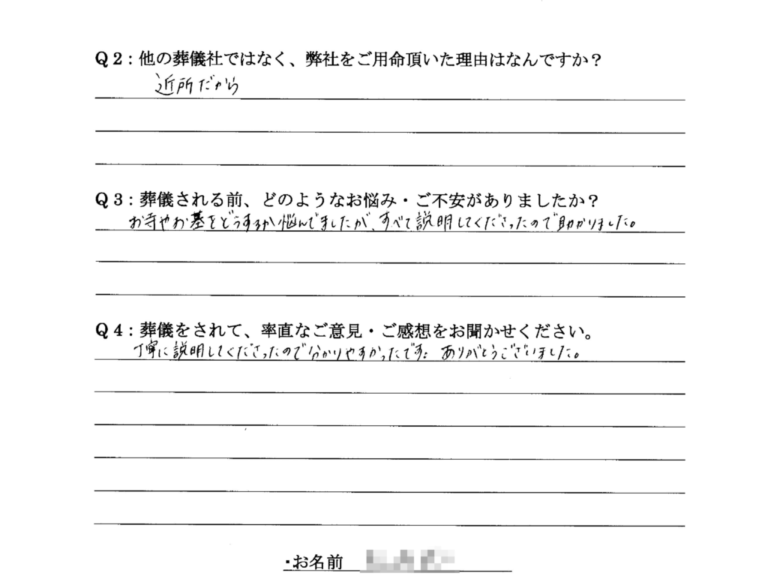 Q2：他の葬儀社ではなく、弊社をご用命頂いた理由はなんですか？
近所だから
Q3：葬儀される前、どのようなお悩み・ご不安がありましたか？
お寺やお墓をどうするか悩んでましたが、すべて説明してくださったので助かりました。
Q4：葬儀をされて、率直なご意見・ご感想をお聞かせください。
丁寧に説明してくださったので分かりやすかったです。ありがとうございました。
・お名前